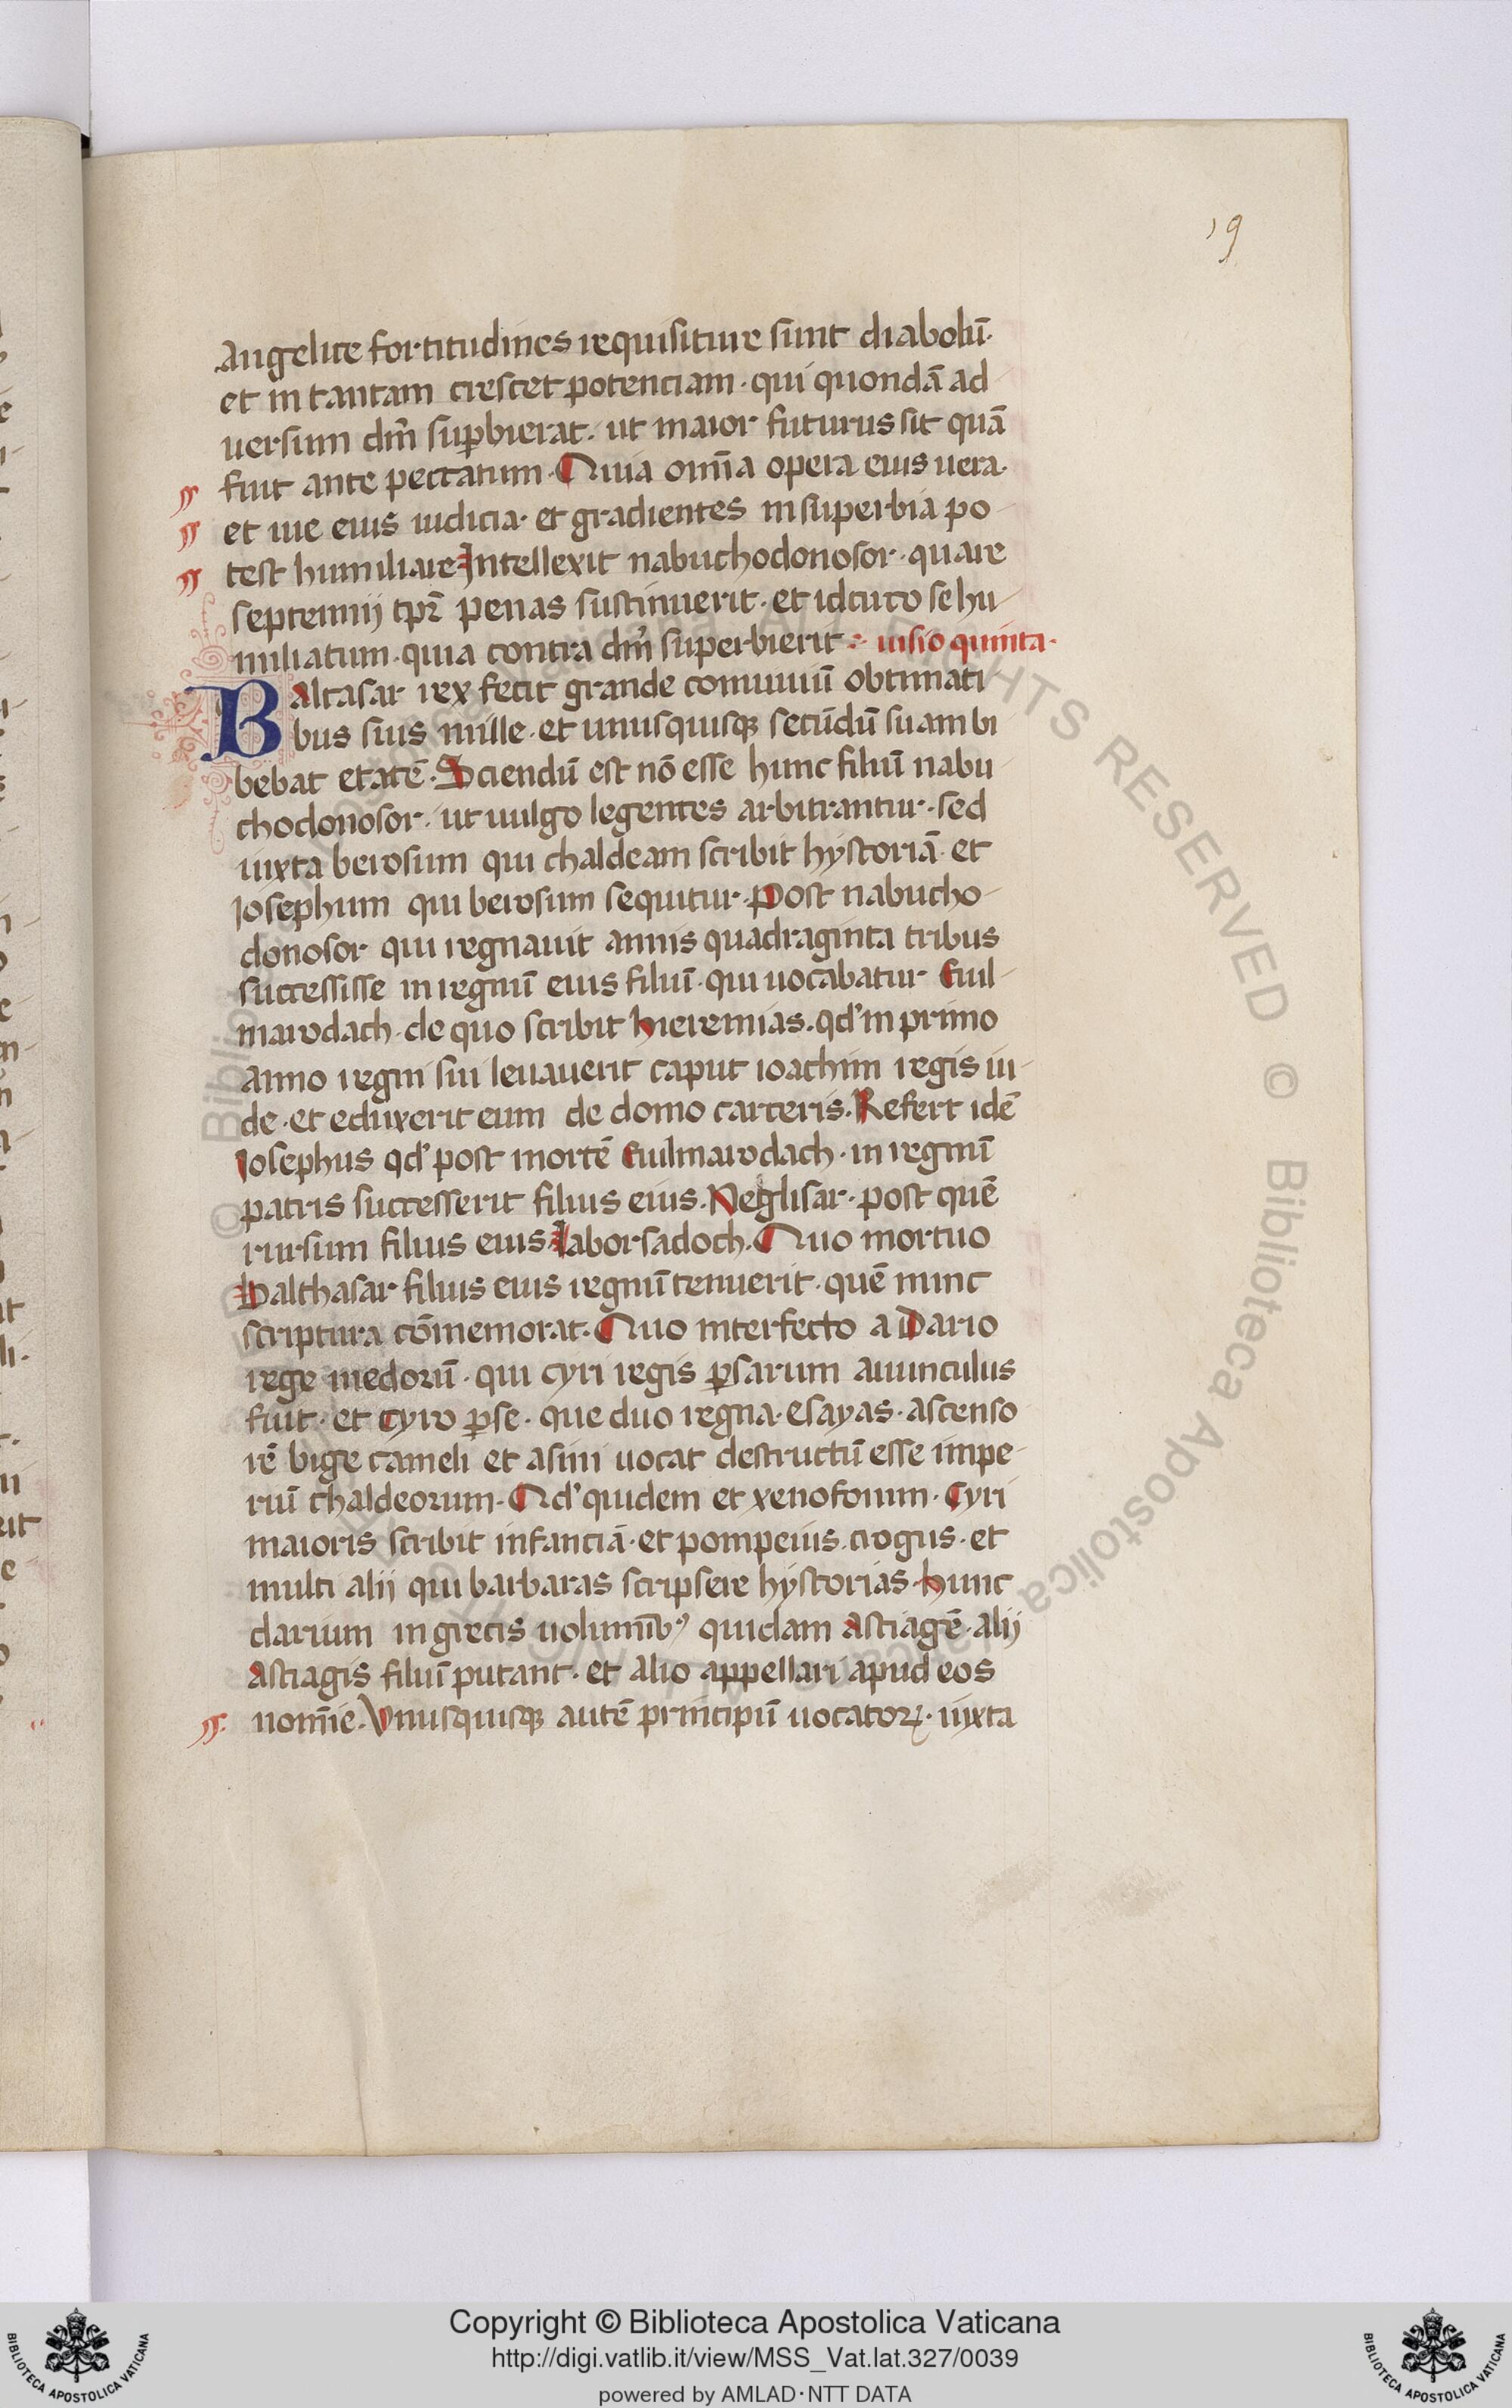 19
Angelice fortitudines requisiture sunt diabolū.
et in tantam crescet potenciam. qui quondā ad
uersum dm̄ suꝑbierat. ut maior futurus sit quā
fuit ante peccatum. Quia om̄ia opera eius uera.
et uie eius iudicia. et gradientes in superbia po
test humiliare Intellexit nabuchodonosor. quare
septennij tpr̄ penas sustinuerit. et idcirco se hu
miliatum. quia contra dm̄ superbierit. uisio quinta.
Baltasar rex fecit grande conuiuiū obtimati
bus suis mille. et unusquisqꝫ secūdū suam bi
bebat etatē. Sciendū est nō esse hunc filiū nabu
chodonosor. ut uulgo legentes arbitrantur. sed
iuxta berosum qui chaldeam scribit hystoriā. et
Iosephum qui berosum sequitur. Post nabucho
donosor qui regnauit annis quadraginta tribus
successisse in regnū eius filiū. qui uocabatur Euil
marodach. de quo scribit hieremias. qd' in primo
anno regni sui leuauerit caput ioachim regis iu
de. et eduxerit eum de domo carceris. Refert idē
Iosephus qd' post mortē Euilmarodach. in regnū
patris successerit filius eius. Neglisar. post quē
rursum filius eius. Laborsadoch. Quo mortuo
Balthasar filius eius regnū tenuerit. quē nunc
scriptura cōmemorat. Quo interfecto a Dario
rege medorū. qui cyri regis ꝑsarum auunculus
fuit. et cyro ꝑse. que duo regna. Esayas. ascenso
rē bige cameli et asini uocat destructū esse impe
riū chaldeorum. Qd' quidem et xenofonum. Cyri
maioris scribit infanciā. et pompeius. trogus. et
multi alii qui barbaras scripsere hystorias. hunc
darium in grecis uolumīb⁹ quidam astiagē. alij
astiagis filiū putant. et alio appellari apud eos
nom̄ie. Vnusquisqꝫ autē principū uocatoꝝ. iuxta
Copyright © Biblioteca Apostolica Vaticana
http://digi.vatlib.it/view/MSS_Vat.lat.327/0039
powered by AMLAD·NTT DATA